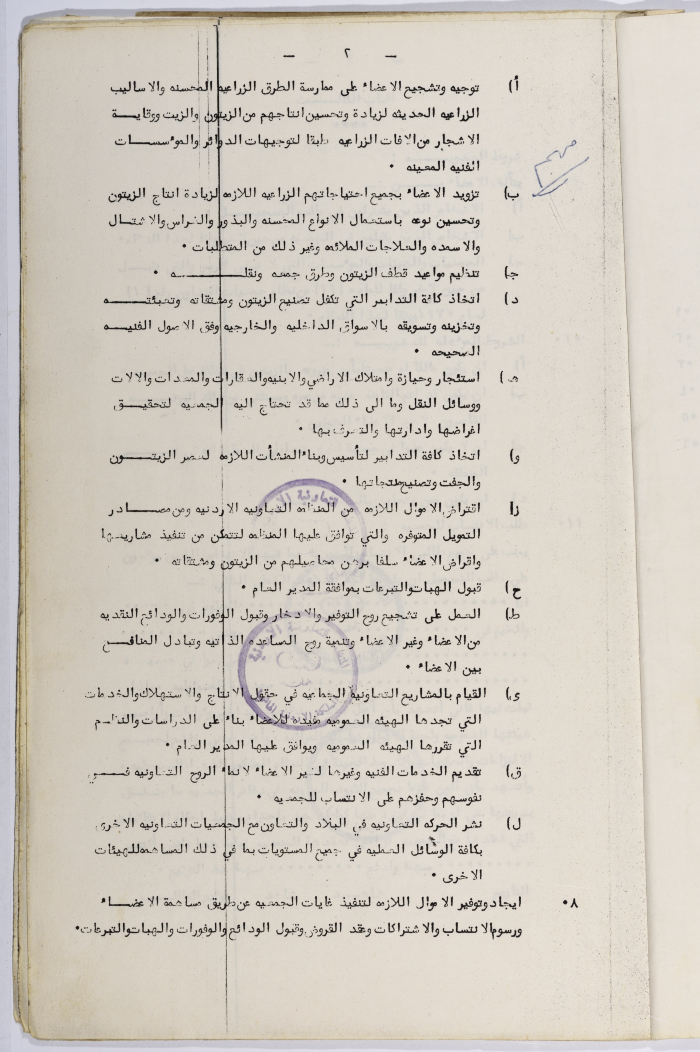 — ٢ —
أ) توجيه وتشجيع الاعضاء على ممارسة الطرق الزراعيه المحسنه والاساليب
الزراعيه الحديثه لزيادة وتحسين انتاجهم من الزيتون والزيت ووقايــة
الاشجار من الافات الزراعيه طبقا لتوجيهات الدوائر والمؤسســات
الفنيه المعينه ٠
مهم
ب) تزويد الاعضاء بجميع احتياجاتهم الزراعيه اللازمه لزيادة انتاج الزيتون
وتحسين نوعه باستعمال الانواع المحسنه والبذور والغراس والاشتال
والاسمده والعلاجات الملائمه وغير ذلك من المتطلبات ٠
جـ) تنظيم مواعيد قطف الزيتون وطرق جمعه ونقلـــــــه ٠
د) اتخاذ كافة التدابير التي تكفل تصنيع الزيتون ومشتقاته وتعبئتــــه
وتخزينه وتسويقه بالاسواق الداخليه والخارجيه وفق الاصول الفنيــه
الصحيحه ٠
هـ) استئجار وحيازة وامتلاك الاراضي والابنيه والعقارات والمعدات والالات
ووسائل النقل وما الى ذلك مما قد تحتاج اليه الجمعيه لتحقيــق
اغراضها وادارتها والتصرف بها ٠
و) اتخاذ كافة التدابير لتأسيس وبناء المنشأت اللازمه لعصر الزيتــــون
والجفت وتصنيع منتجاتها ٠
ز) اقتراض الاموال اللازمه من المنظمه التعاونيه الاردنيه ومن مصــادر
التمويل المتوفره والتي توافق عليها المنظمه لتتمكن من تنفيذ مشاريعها
واقراض الاعضاء سلفا برهن محاصيلهم من الزيتون ومشتقاته ٠
ح) قبول الهبات والتبرعات بموافقة المدير العام ٠
ط) العمل على تشجيع روح التوفير والادخار وقبول الوفورات والودائع النقديه
من الاعضاء وغير الاعضاء وتنمية روح المساعده الذاتيه وتبادل المنافــع
بين الاعضاء ٠
ى) القيام بالمشاريع التعاونيه الجماعيه في حقول الانتاج والاستهلاك والخدمات
التي تجدها الهيئه العموميه مفيده للاعضاء بناء على الدراسات والنظــم
التي تقررها الهيئه العموميه ويوافق عليها المدير العام ٠
ق) تقديم الخدمات الفنيه وغيرها لغير الاعضاء لانماء الروح التعاونيه فــي
نفوسهم وحفزهم على الانتساب للجمعيه ٠
ل) نشر الحركه التعاونيه في البلاد والتعاون مع الجمعيات التعاونيه الاخرى
بكافة الوسائل العمليه في جميع المستويات بما في ذلك المساهمه للهيئات
الاخرى ٠
٨٠ ايجاد وتوفير الاموال اللازمه لتنفيذ غايات الجمعيه عن طريق مساهمة الاعضــاء
ورسوم الانتساب والاشتراكات وعقد القروض وقبول الودائع والوفورات والهبات والتبرعات٠